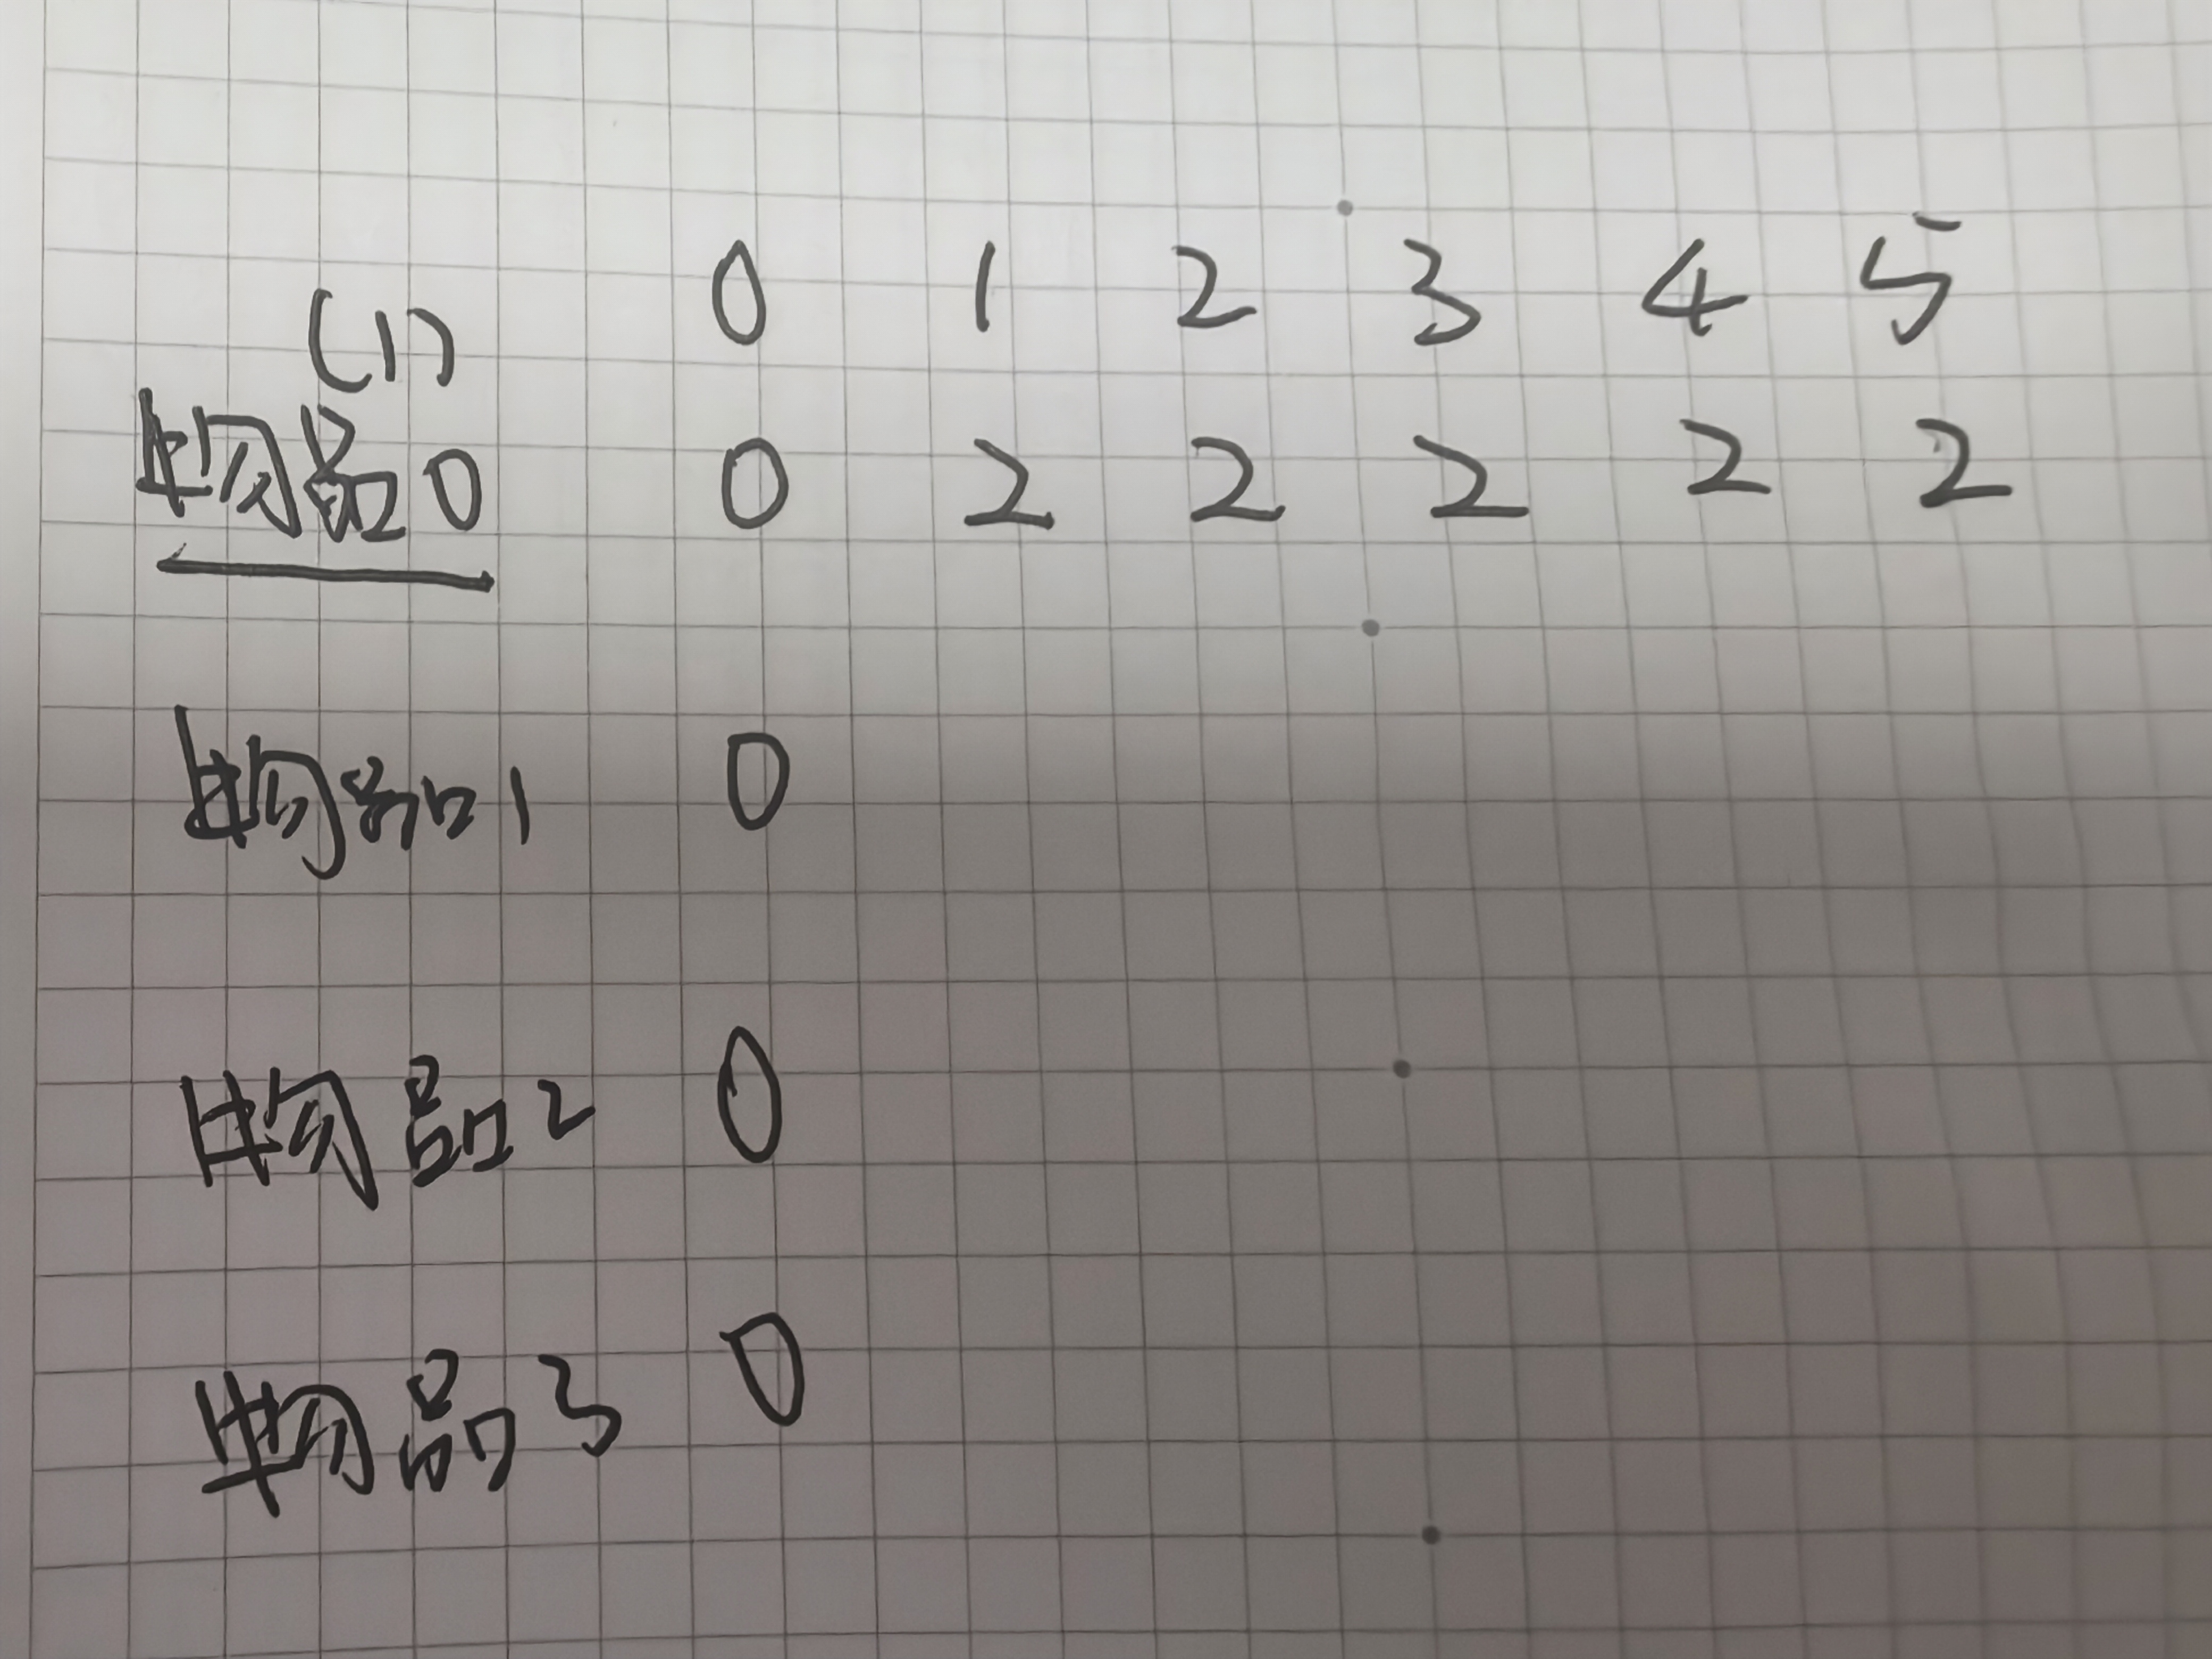 (1) 0 1 2 3 4 5
物品0 0 2 2 2 2 2
物品1 0
物品2 0
物品3 0